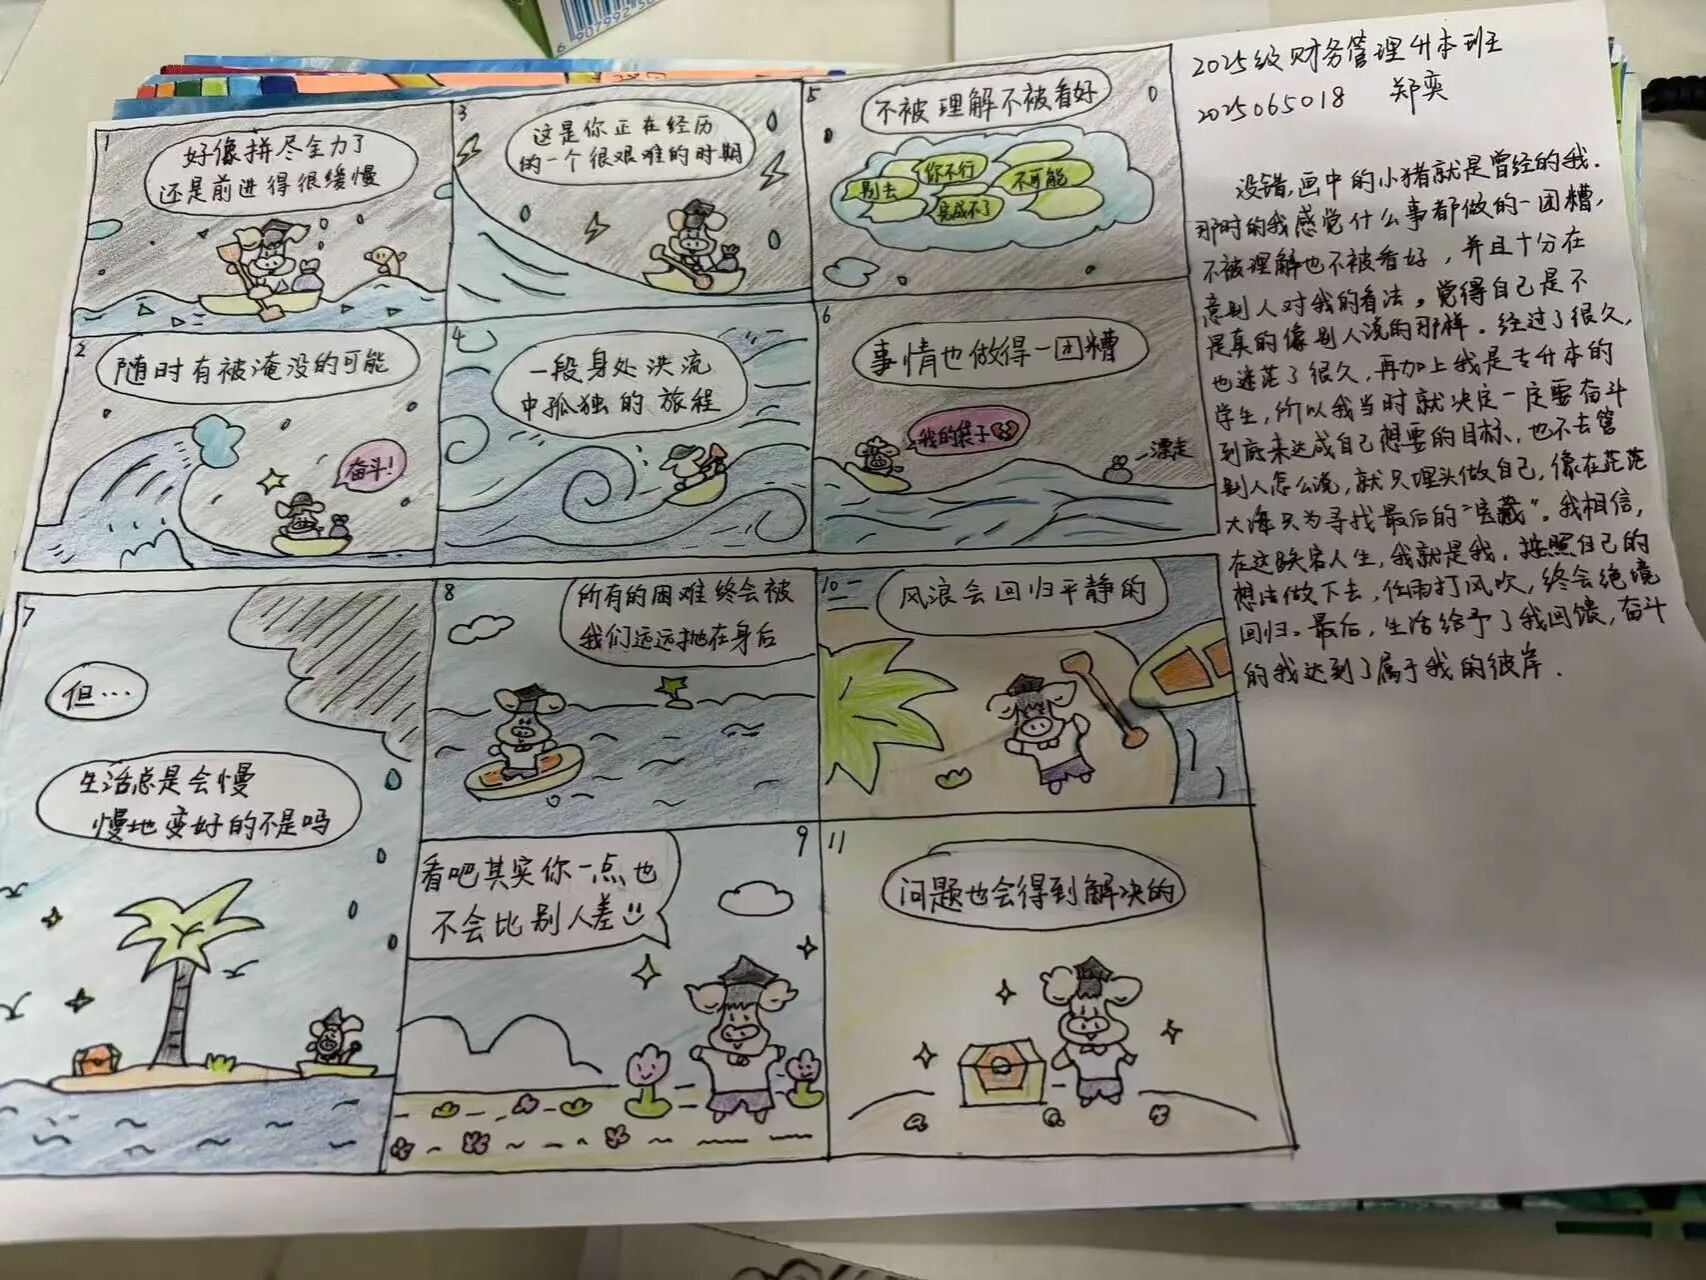 2025级财务管理升本班
2025065018 郑奕
1
好像拼尽全力了
还是前进得很缓慢
2
随时有被淹没的可能
奋斗!
3
这是你正在经历
的一个很艰难的时期
4
一段身处洪流
中孤独的旅程
5
不被理解不被看好
别去
你不行
完成不了
不可能
6
事情也做得一团糟
我的袋子
漂走
7
但...
生活总是会慢
慢地变好的不是吗
8
所有的困难终会被
我们远远抛在身后
9
看吧其实你一点也
不会比别人差
10
风浪会回归平静的
11
问题也会得到解决的
没错,画中的小猪就是曾经的我.
那时的我感觉什么事都做的一团糟,
不被理解也不被看好,并且十分在
意别人对我的看法。觉得自己是不
是真的像别人说的那样.经过了很久,
也迷茫了很久,再加上我是专升本的
学生,所以我当时就决定一定要奋斗
到底来达成自己想要的目标,也不去管
别人怎么说,就只埋头做自己,像在茫茫
大海只为寻找最后的"宝藏"。我相信,
在这人生,我就是我,按照自己的
想法做下去,任雨打风吹,终会绝境
回归。最后,生活给予了我回馈,奋斗
的我达到了属于我的彼岸.
6907992